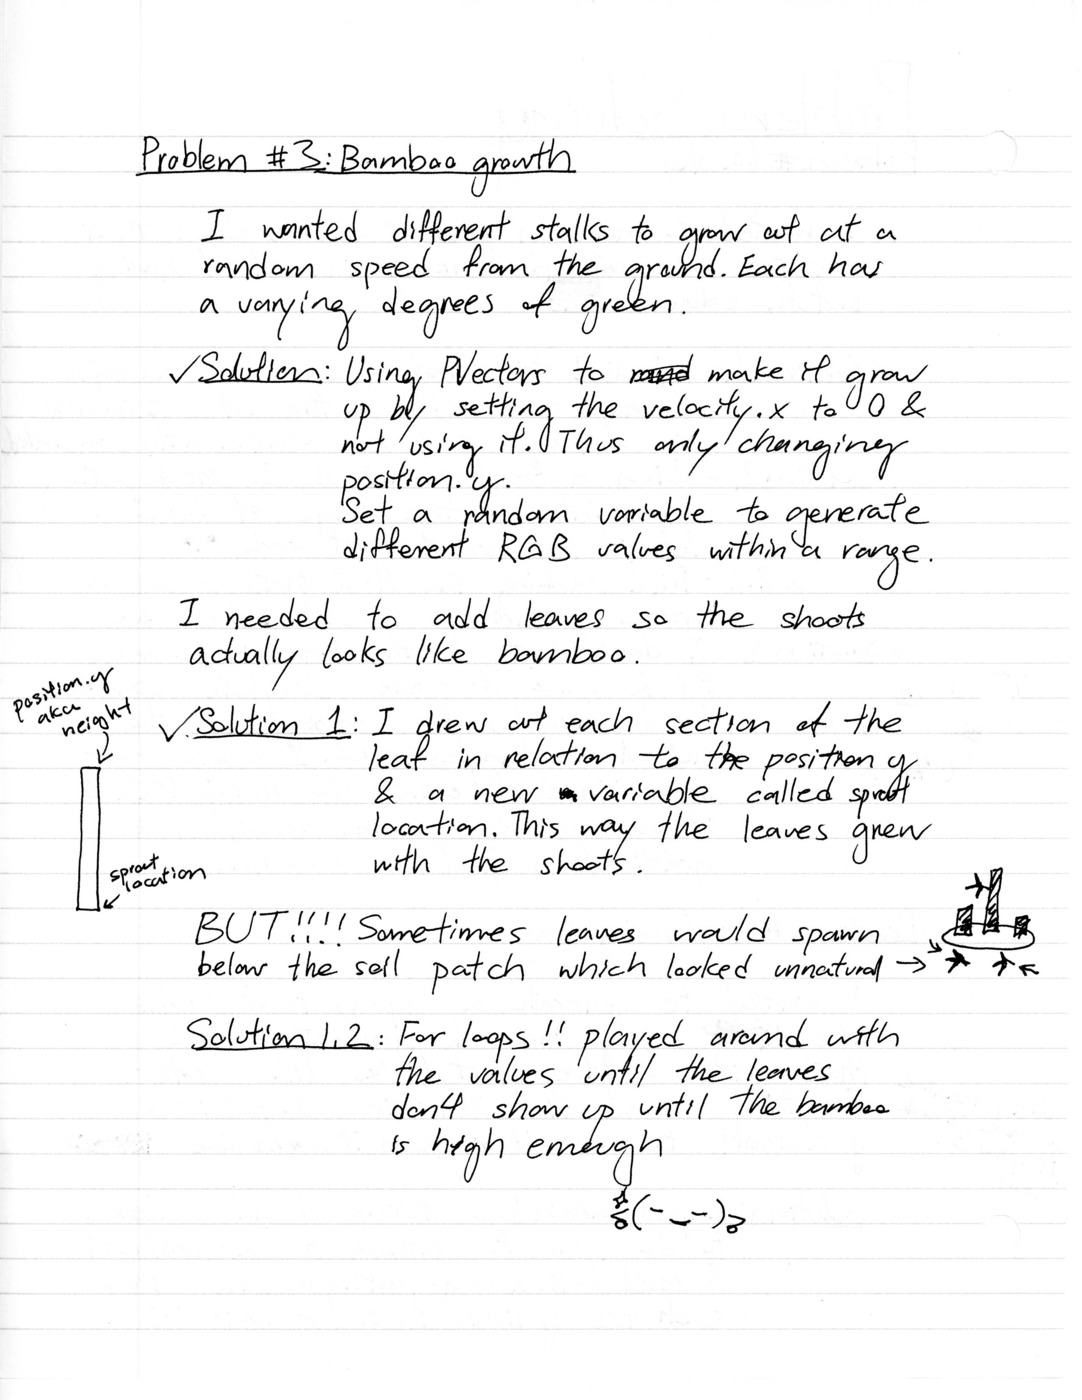 Problem #3: Bamboo growth
I wanted different stalks to grow out at a
random speed from the ground. Each has
a varying degrees of green.
✓Solution: Using PVectors to make it grow
up by setting the velocity.x to 0 &
not using it. Thus only changing
position.y.
Set a random variable to generate
different RGB values within a range.
I needed to add leaves so the shoots
actually looks like bamboo.
position.y
aka
height
✓Solution 1: I drew out each section of the
leaf in relation to the position y
& a new variable called sprout
location. This way the leaves grew
with the shoots.
sprout
location
BUT!!!! Sometimes leaves would spawn
below the soil patch which looked unnatural →
Solution 1.2: For loops!! played around with
the values until the leaves
don't show up until the bamboo
is high enough